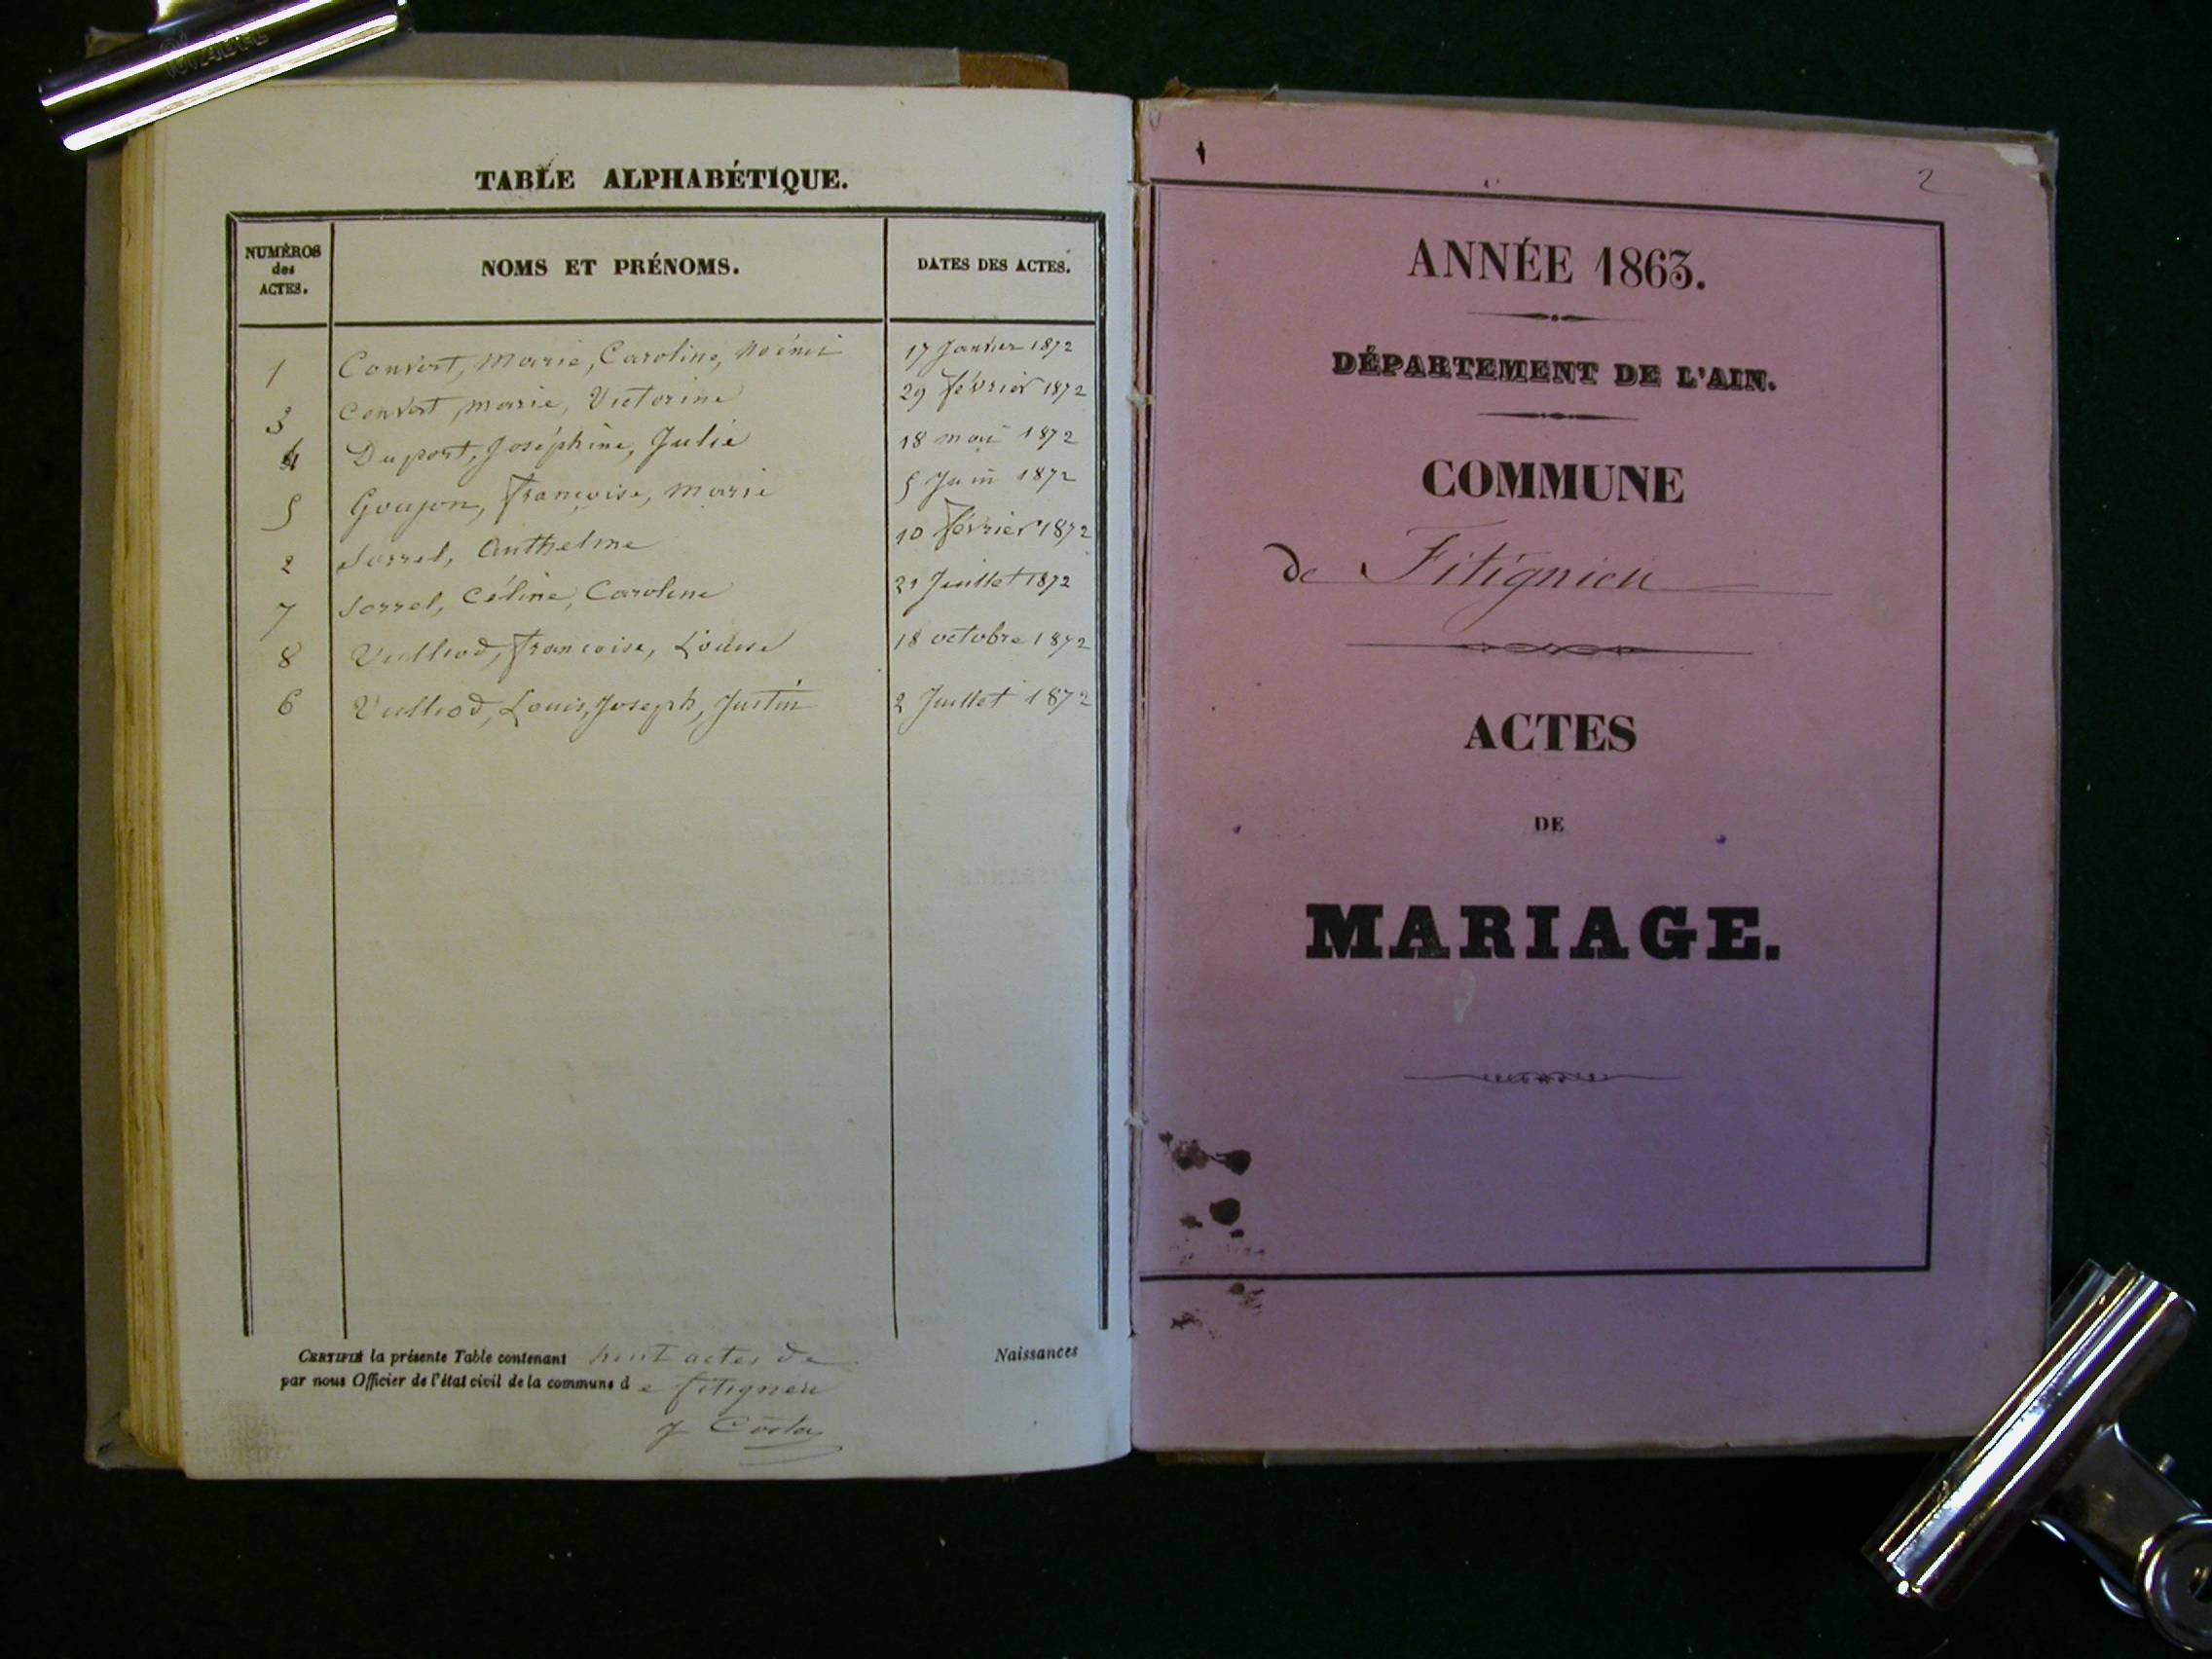 TABLE ALPHABÉTIQUE.
NUMÉROS des ACTES. NOMS ET PRÉNOMS. DATES DES ACTES.
1 Convert, Marie, Caroline, Noémi 17 Janvier 1872
3 Convert, Marie, Victorine 29 février 1872
4 Duport, Joséphine, Julie 18 mai 1872
5 Goujon, françoise, Marie 5 Juin 1872
2 Sorrel, Anthelme 10 février 1872
7 Sorrel, Céline, Caroline 21 Juillet 1872
8 Vulliod, françoise, Louise 18 octobre 1872
6 Vulliod, Louis, Joseph, Justin 2 Juillet 1872
CERTIFIÉ la présente Table contenant huit actes de Naissances
par nous Officier de l'état civil de la commune de fitignieu
ANNÉE 1863.
DÉPARTEMENT DE L'AIN.
COMMUNE
de Fitignieu
ACTES
DE
MARIAGE.
2